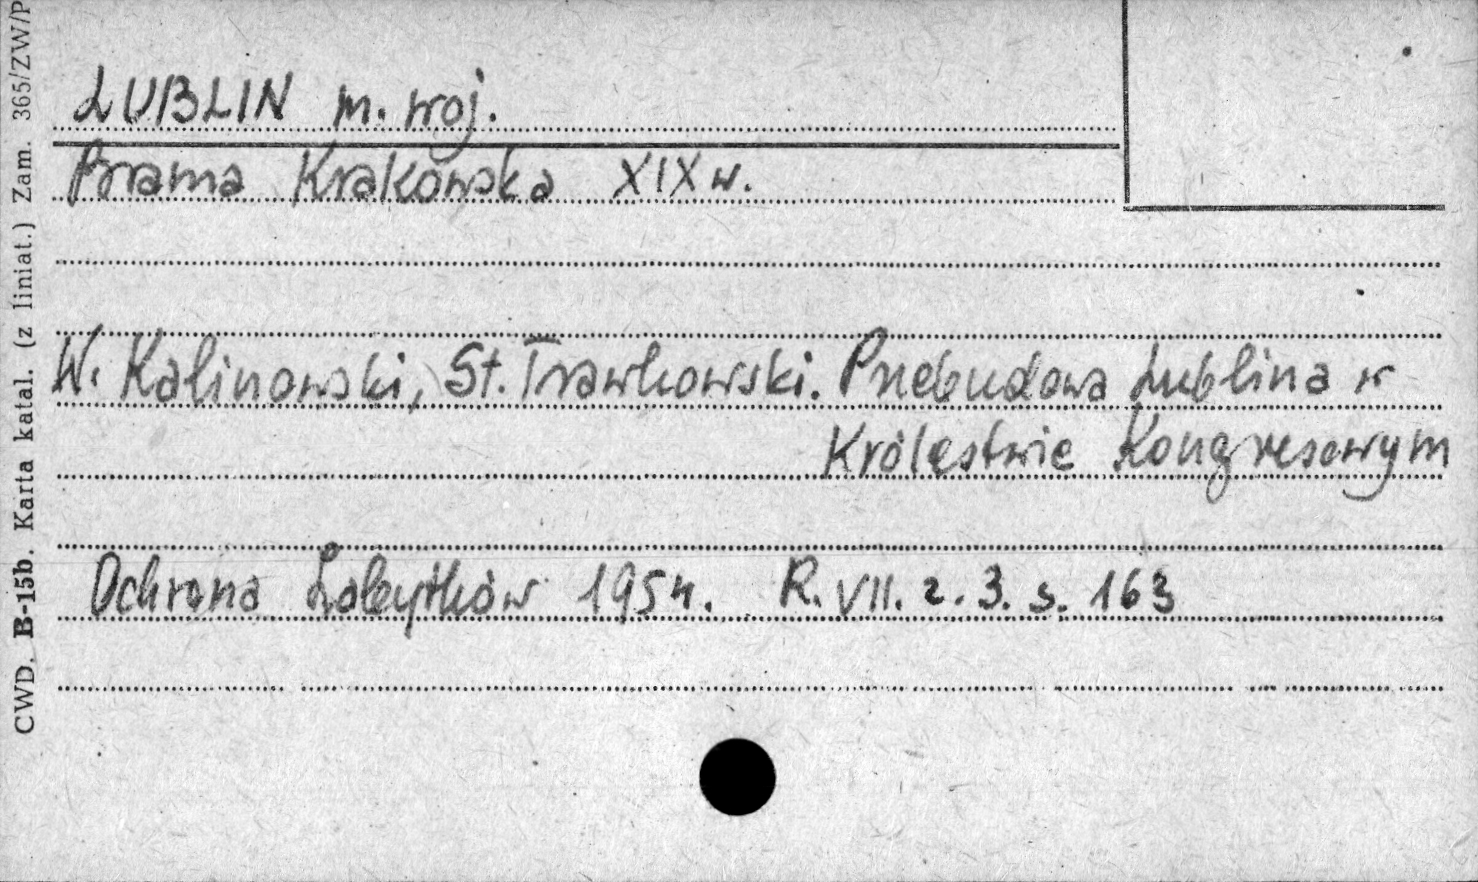 LUBLIN m. woj.
Brama Krakowska XIX w.
W. Kalinowski, St. Trawkowski. Przebudowa Lublina w
Królestwie Kongresowym
Ochrona Zabytków 1954. R. VII. z. 3. s. 163
CWD. B-15b. Karta katal. (z liniat.) Zam. 365/ZW/P